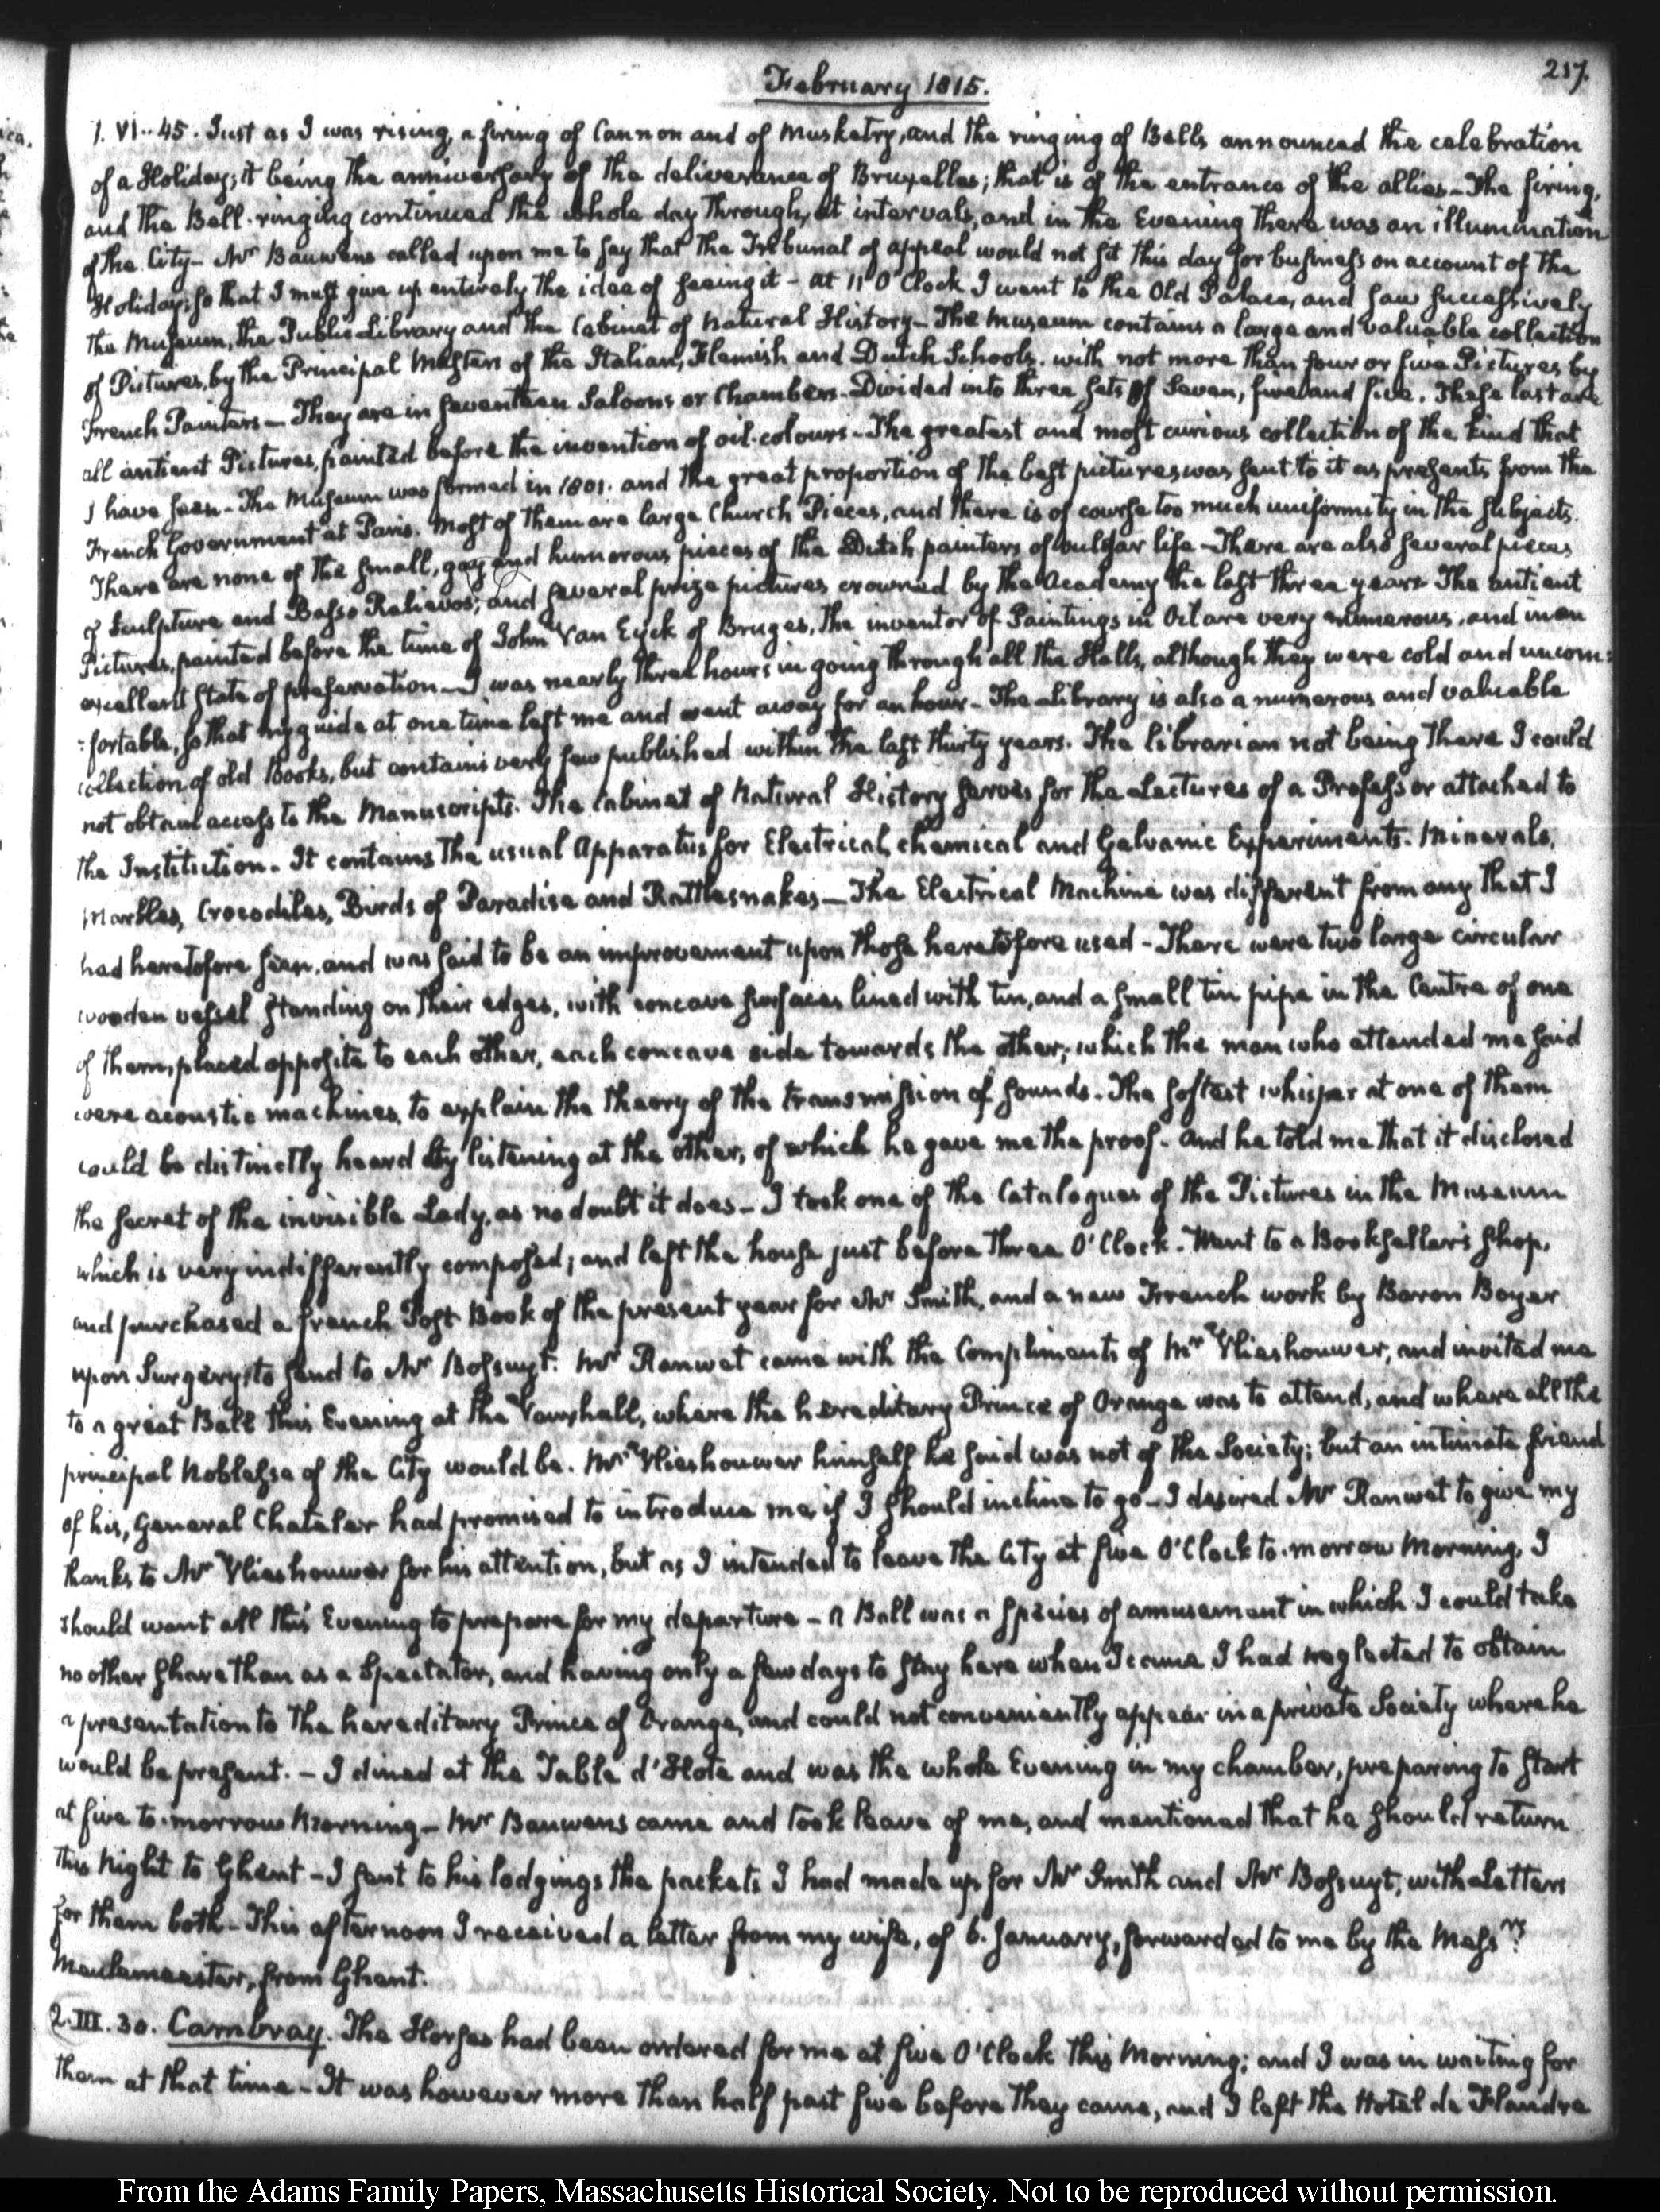 217.
February 1815.
1. VI..45. Just as I was rising, a firing of Cannon and of musketry, and the ringing of Bells announced the celebration
of a Holiday; it being the anniversary of the deliverance of Bruxelles; that is of the entrance of the allies_ The firing,
and the Bell-ringing continued the whole day through, at intervals, and in the Evening there was an illumination
of the City_ Mr Bauwens called upon me to say that the Tribunal of appeal would not sit this day for business on account of the
Holiday; so that I must give up entirely the idea of seeing it_ at 11 O'Clock I went to the Old Palace, and saw successively
the Museum, the Public Library and the Cabinet of Natural History_ The Museum contains a large and valuable collection
of Pictures, by the Principal Masters of the Italian, Flemish and Dutch Schools. with not more than four or five Pictures by
French Painters_ They are in seventeen Saloons or Chambers_ Divided into three sets of Seven, five and five. These last are
all antient Pictures, painted before the invention of oil-colours_ The greatest and most curious collection of the kind that
I have seen_ The Museum was formed in 1801. and the great proportion of the best pictures was sent to it as presents from the
French Government at Paris. Most of them are large Church Pieces, and there is of course too much uniformity in the subjects.
There are none of the small, gay and humorous pieces of the Dutch painters of vulgar life_ There are also several pieces
of Sculpture and Basso Relievos; and several prize pictures crowned by the Academy the last three years_ The antient
Pictures, painted before the time of John Van Eyck of Bruges, the inventor of Paintings in Oil are very numerous, and in an
excellent state of preservation_ I was nearly three hours in going through all the Halls, although they were cold and uncom:
:fortable, so that my guide at one time left me and went away for an hour_ The Library is also a numerous and valuable
collection of old Books, but contains very few published within the last thirty years. The librarian not being there I could
not obtain access to the Manuscripts. The Cabinet of Natural History serves for the Lectures of a Professor attached to
the Institution_ It contains the usual Apparatus for Electrical, chemical and Galvanic Experiments. Minerals,
Marbles, Crocodiles, Birds of Paradise and Rattlesnakes_ The Electrical Machine was different from any that I
had heretofore seen, and was said to be an improvement upon those heretofore used_ There were two large circular
wooden vessel standing on their edges, with concave surfaces lined with tin, and a small tin pipe in the Centre of one
of them, placed opposite to each other, each concave side towards the other, which the man who attended me said
were acoustic machines, to explain the theory of the transmission of sounds_ The softest whisper at one of them
could be distinctly heard by listening at the other, of which he gave me the proof_ and he told me that it disclosed
the secret of the invisible Lady, as no doubt it does_ I took one of the Catalogues of the Pictures in the Museum
which is very indifferently composed; and left the house just before three O'Clock. Went to a Bookseller's shop,
and purchased a french Post-Book of the present year for Mr Smith, and a new French work by Baron Boyer
upon Surgery, to send to Mr Bossuyt. Mr Ranwet came with the Compliments of Mr Vlieshouwer, and invited me
to a great Ball this Evening at the Vauxhall, where the hereditary Prince of Orange was to attend, and where all the
principal Noblesse of the City would be. Mr Vlieshouwer himself he said was not of the Society; but an intimate friend
of his, General Chateler had promised to introduce me, if I should incline to go_ I desired Mr Ranwet to give my
thanks to Mr Vlieshouwer for his attention, but as I intended to leave the City at five O'Clock to-morrow Morning, I
should want all this Evening to prepare for my departure_ A Ball was a species of amusement in which I could take
no other share than as a Spectator, and having only a few days to stay here when I came I had neglected to obtain
a presentation to the hereditary Prince of Orange, and could not conveniently appear in a private Society where he
would be present._ I dined at the Table d'Hote and was the whole Evening in my chamber, preparing to start
at five to-morrow Morning_ Mr Bauwens came and took leave of me, and mentioned that he should return
this Night to Ghent_ I sent to his lodgings the packets I had made up for Mr Smith and Mr Bossuyt, with Letters
for them both_ This afternoon I received a letter from my wife, of 6. January, forwarded to me by the Messrs
Meulemeester, from Ghent.
2. III. 30. Cambray. The Horses had been ordered for me at five O'Clock this Morning; and I was in waiting for
them at that time_ It was however more than half past five before they came, and I left the Hotel de Flandre
From the Adams Family Papers, Massachusetts Historical Society. Not to be reproduced without permission.